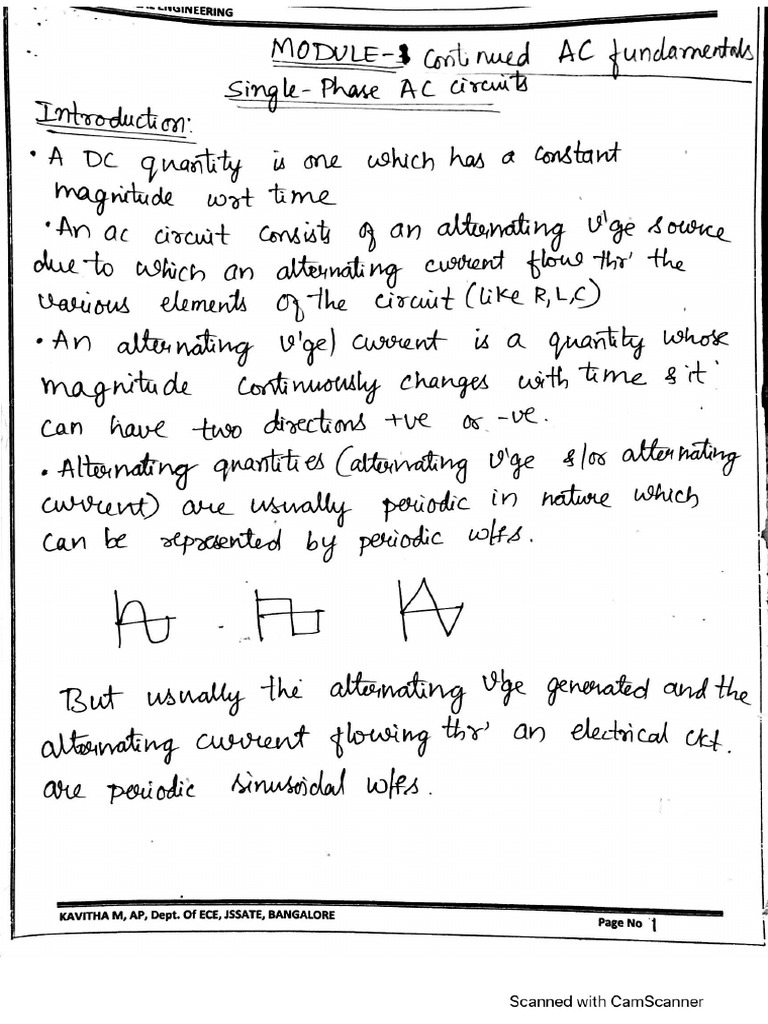 ENGINEERING
MODULE-3 Continued AC fundamentals
Single-Phase AC circuits
Introduction:
• A DC quantity is one which has a constant
magnitude wrt time
• An ac circuit consists of an alternating V'ge source
due to which an alternating current flow thr' the
various elements of the circuit (like R, L, C)
• An alternating V'ge) current is a quantity whose
magnitude continuously changes with time & it
can have two directions +ve or -ve.
• Alternating quantities (alternating V'ge &/or alternating
current) are usually periodic in nature which
can be represented by periodic w/fs.
But usually the alternating V'ge generated and the
alternating current flowing thr' an electrical ckt.
are periodic sinusoidal w/fs.
KAVITHA M, AP, Dept. Of ECE, JSSATE, BANGALORE
Page No 1
Scanned with CamScanner